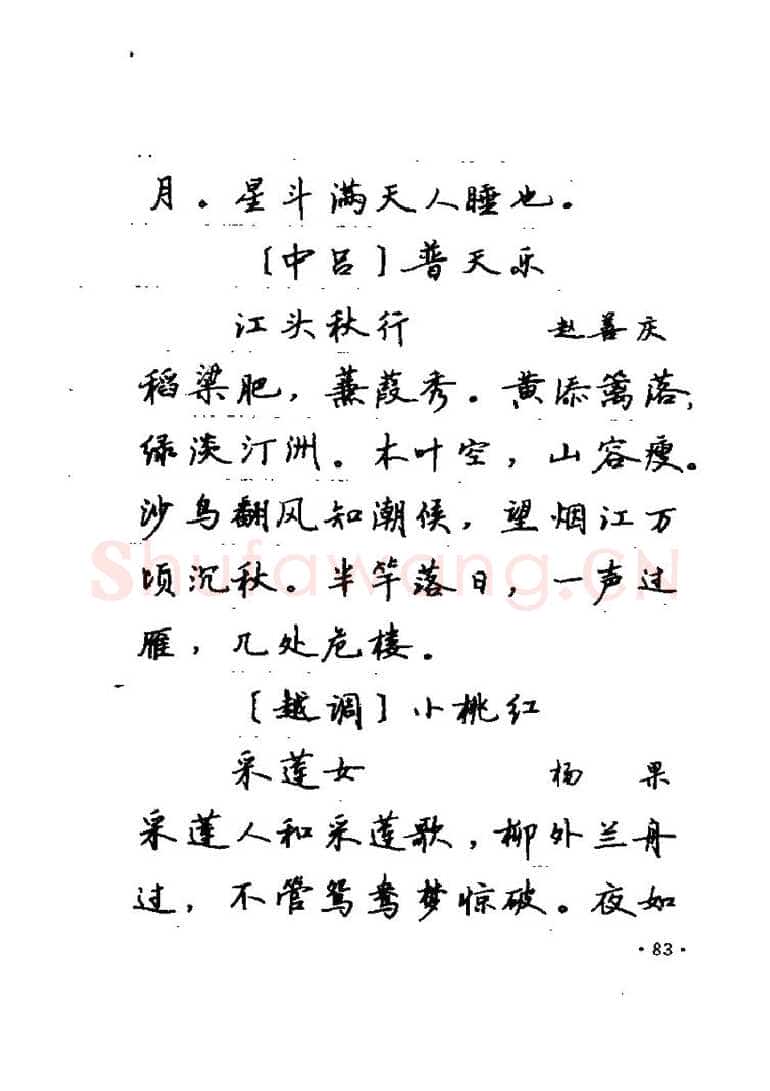 月。星斗满天人睡也。
[中吕]普天乐
江头秋行 赵善庆
稻粱肥，蒹葭秀。黄添篱落，
绿淡汀洲。木叶空，山容瘦。
沙鸟翻风知潮候，望烟江万
顷沉秋。半竿落日，一声过
雁，几处危楼。
[越调]小桃红
采莲女 杨 果
采莲人和采莲歌，柳外兰舟
过，不管鸳鸯梦惊破。夜如
·83·
Shufawang.CN